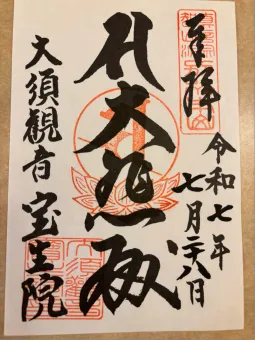 奉拝
令和七年
七月廿八日
大悲殿
大須観音
宝生院